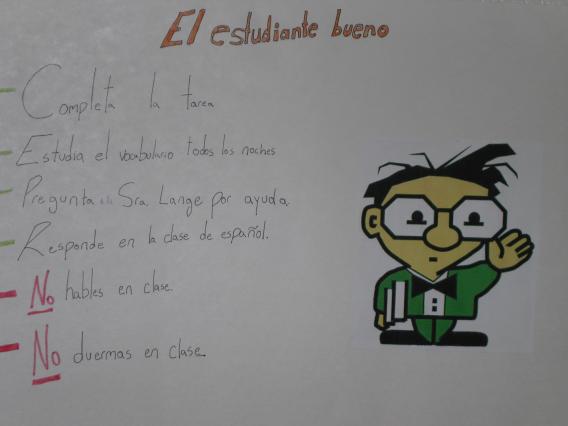 El estudiante bueno
Completa la tarea
Estudia el vocabulario todos los noches
Pregunta a la Sra. Lange por ayuda.
Responde en la clase de español.
No hables en clase.
No duermas en clase.